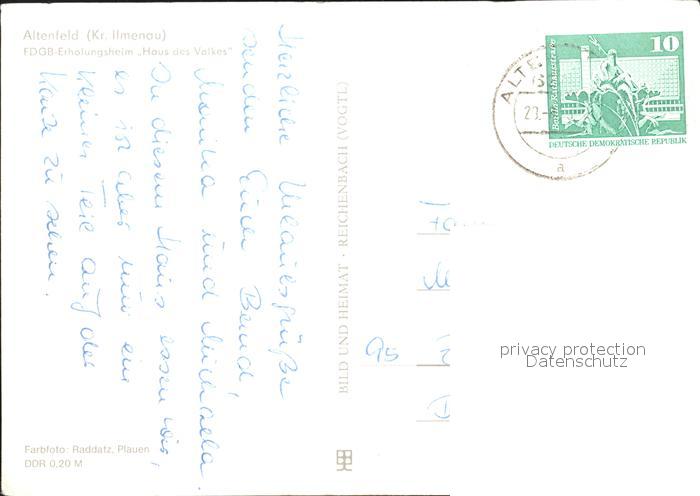 Altenfeld (Kr. Ilmenau)
FDGB-Erholungsheim „Haus des Volkes"
Herzliche Urlaubsgrüße
senden Euch Bernd,
Monika und Michaela.
In diesem Haus essen wir,
es ist aber nur ein
kleiner Teil auf der
Karte zu sehen.
Farbfoto: Raddatz, Plauen
DDR 0,20 M
BILD UND HEIMAT · REICHENBACH (VOGTL)
10
Berlin-Rathausstraße
DEUTSCHE DEMOKRATISCHE REPUBLIK
ALTE
a
95
privacy protection
Datenschutz